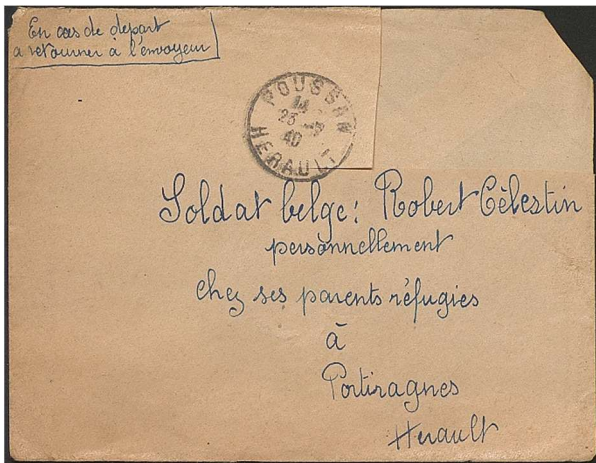 En cas de depart
a retourner à l'envoyeur
POUSSAN
14
23
40
HERAULT
Soldat belge: Robert Célestin
personnellement
chez ses parents réfugies
à
Portiragnes
Herault